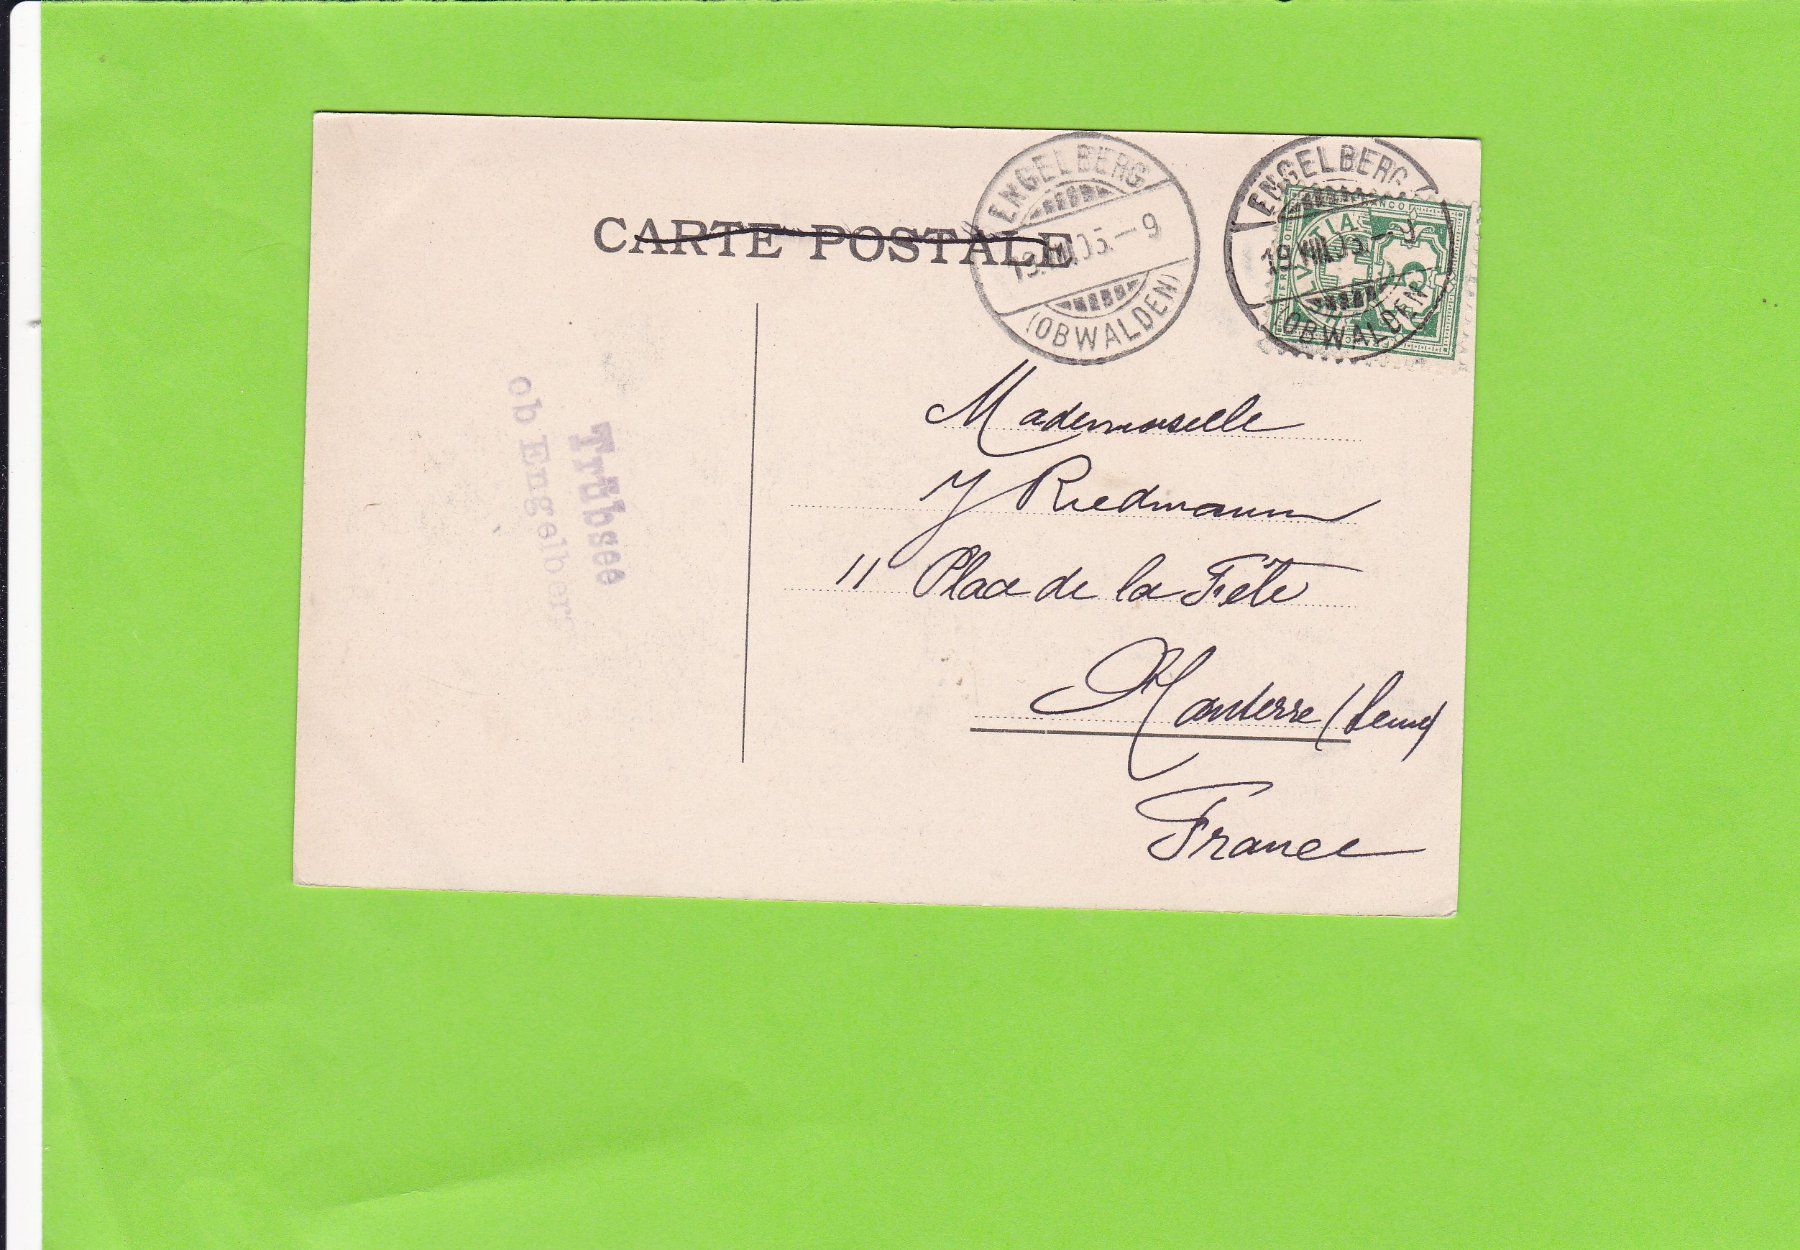 CARTE POSTALE
ENGELBERG
19.VIII.05.–9
(OBWALDEN)
ENGELBERG
19.VIII.05.–9
(OBWALDEN)
HELVETIA
FRANCO
5
Trübsee
ob Engelberg
Mademoiselle
J Riedmann
11 Place de la Fête
Nanterre (Seine)
France